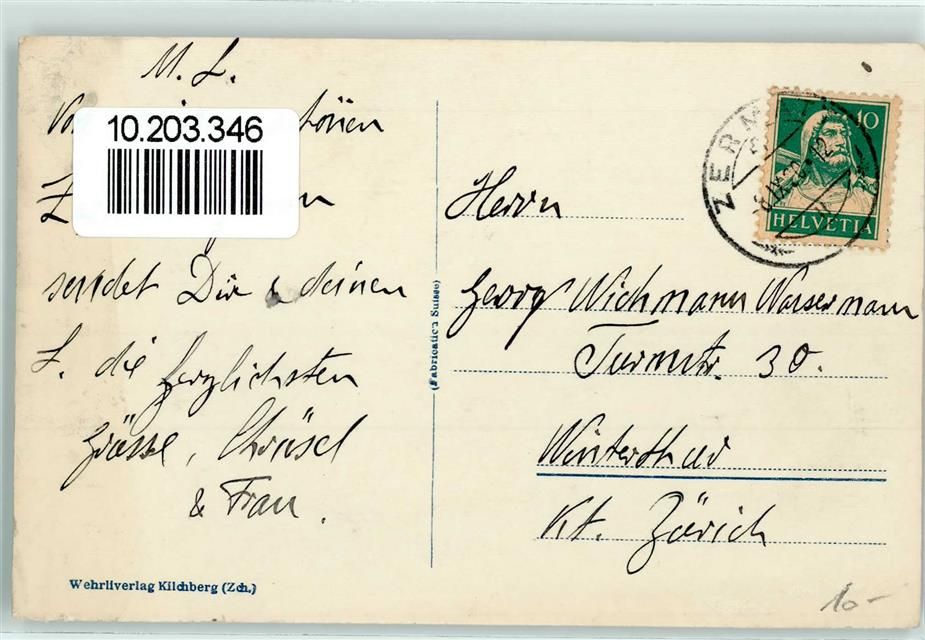 M. L.
10.203.346
sendet Dir & deinen
L. die herzlichsten
Grüsse,
& Frau.
Wehrliverlag Kilchberg (Zch.)
(Fabrication Suisse)
ZERMATT
10
HELVETIA
Herrn
Georg Wichmann Wassermann
Turmstr. 30.
Winterthur
Kt. Zürich
10-